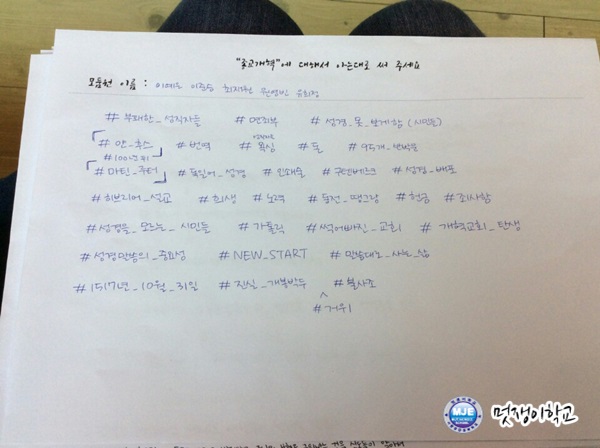 "종교개혁"에 대해서 아는대로 써 주세요
모둠원 이름 :
#부패한_성직자들 #면죄부 #성경_못_보게함 (시민들)
#얀_후스 #번역 #욕심 #돈 #95개_반박문
#100년뒤
#마틴_루터 #독일어_성경 #인쇄술 #구텐베르크 #성경_배포
#히브리어_설교 #희생 #노력 #동전_땡그랑 #헌금 #죄사함
#성경을_모르는_시민들 #가톨릭 #썩어빠진_교회 #개혁교회_탄생
#성경말씀의_중요성 #NEW_START #말씀대로_사는_삶
#1517년_10월_31일 #진실_개봉박두 #불사조
#거위
MJE
멋쟁이학교